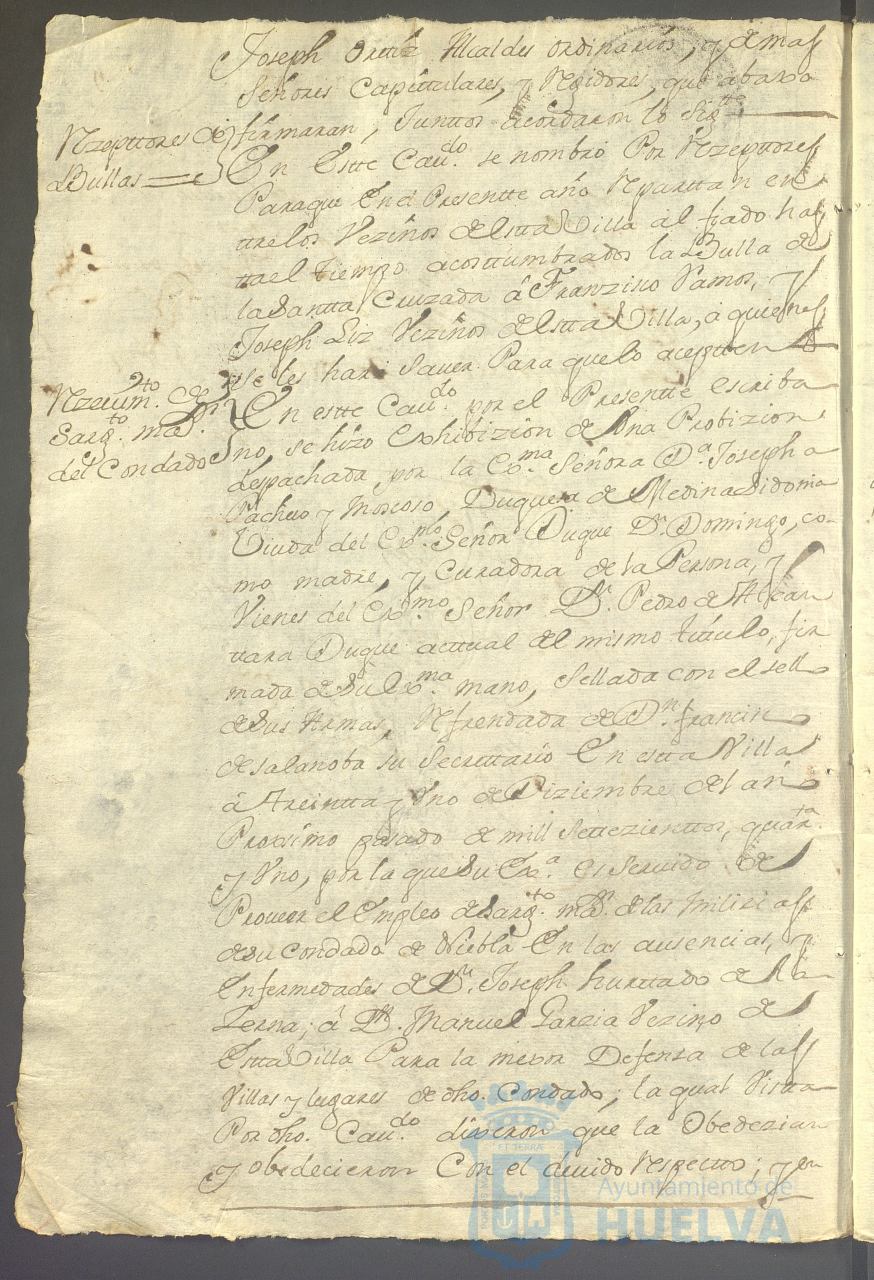 Joseph Orttiz Alcaldes ordinarios, y demas
Señores Capittulares, y Rexidores, que abaxo
firmaran, Junttos acordaron lo sigte
Rzepttores de
Bullas
En Estte Caudo. se nombró Por Rzepttores
Paraque En el Presentte año Reparttan en
ttrelos Vezinos de Estta Villa al fiado has
ttael tiempo acosttumbrado la Bulla de
la Santta Cruzada â Franzisco Ramos, y
Joseph Liz Vezinos de Estta Villa, a quienes
se les hará Saver Para quelo azeptten
Rzeuimto. de
Sargto. mor.
del Condado
En estte Caudo. por el Presentte escriba
no, se hizo Exhibizión de Una Probizion
despachada, por la Exma. Señora Da. Josepha
Pacheco y Moscoso, Duquesa de Medina Sidonia
Viuda del Exmo. Señor Duque Dn. Domingo, co-
mo madre, y Curadora de la Persona, y
Vienes del Exmo. Señor Dn. Pedro de Alcan
tara Duque acttual del mismo tittulo, fir
mada de Su Exma. mano, Sellada con el sello
de Sus Armas, Refrendada de Dn. francisco
de salanoba su Secrettario En estta Villa
â treintta y Uno de Diziembre del año
Proximo pasado de mill Settezienttos, quarta.
y Uno, por la que Su Exa. es Servido de
Proueer el Empleo de Sargto. mor. de las milizias
de su Condado de Niebla En las ausencias, y
Enfermedades de Dn. Joseph hurttado de
; â Dn. Manuel Garzia Vezino de
Estta Villa Para la mexor Defensa de las
Villas y lugares de dho. Condado; la qual Vista
Por dho. Caudo. dixeron que la Obedezian
y obedecieron Con el deuido respectto; y en
Ayuntamiento de
HUELVA